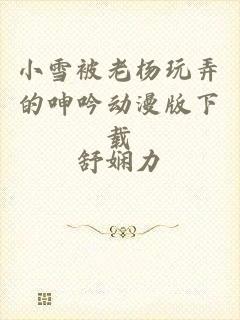 小雪被老杨玩弄
的呻吟动漫版下
载
舒娴力